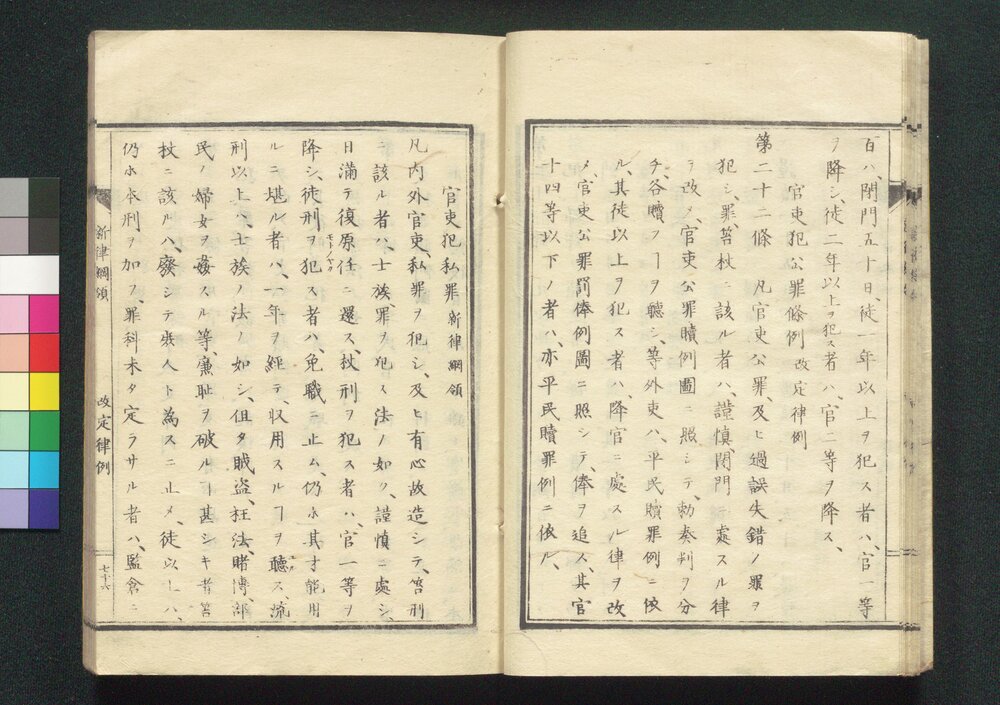 百ハ、閉門五十日、徒一年以上ヲ犯ス者ハ、官一等
ヲ降シ、徒二年以上ヲ犯ス者ハ、官二等ヲ降ス、
官吏犯公罪條例 改定律例
第二十二條 凡官吏公罪、及ヒ過誤失錯ノ罪ヲ
犯シ、罪、笞杖ニ該ル者ハ、謹慎、閉門ニ處スル律
ヲ改メ、官吏公罪贖例圖ニ照シテ、勅奏判ヲ分
チ、各贖フヿヲ聽シ、等外吏ハ、平民贖罪例ニ依
ル、其徒以上ヲ犯ス者ハ、降官ニ處スル律ヲ改
メ、官吏公罪罰俸例圖ニ照シテ、俸ヲ追ス、其官
十四等以下ノ者ハ、亦平民贖罪例ニ依ル、
官吏犯私罪 新律綱領
凡内外官吏、私罪ヲ犯シ、及ヒ有心故造シテ、笞刑
ニ該ル者ハ、士族、罪ヲ犯ス法ノ如ク、謹慎ニ處シ、
日滿テ復原任ニ還ス、杖刑ヲ犯ス者ハ、官一等ヲ
降シ、徒刑ヲ犯ス者ハ、免職ニ止ム、仍ホ其才能用
ルニ堪ル者ハ、一年ヲ經テ、収用スルヿヲ聽ス、流
刑以上ハ、士族ノ法ノ如シ、但タ賊盗、枉法、賭博、部
民ノ婦女ヲ姦スル等、廉耻ヲ破ルヿ甚シキ者、笞
杖ニ該ルハ、廢シテ庶人ト為スニ止メ、徒以上ハ、
仍ホ本刑ヲ加フ、罪科未タ定ラサル者ハ、監倉ニ
新律綱領 改定律例 七十六